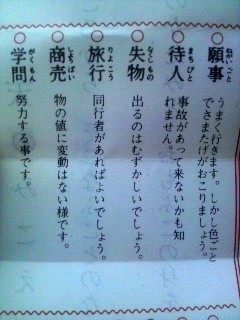 願事 うまく行きます。しかし色ごと
でさまたげがおこりましょう。
待人 事故があって来ないかも知
れません。
失物 出るのはむずかしいでしょう。
旅行 同行者があればよいでしょう。
商売 物の値に変動はない様です。
学問 努力する事です。
ねがいごと
まちびと
なくしもの
りょこう
しょうばい
がくもん